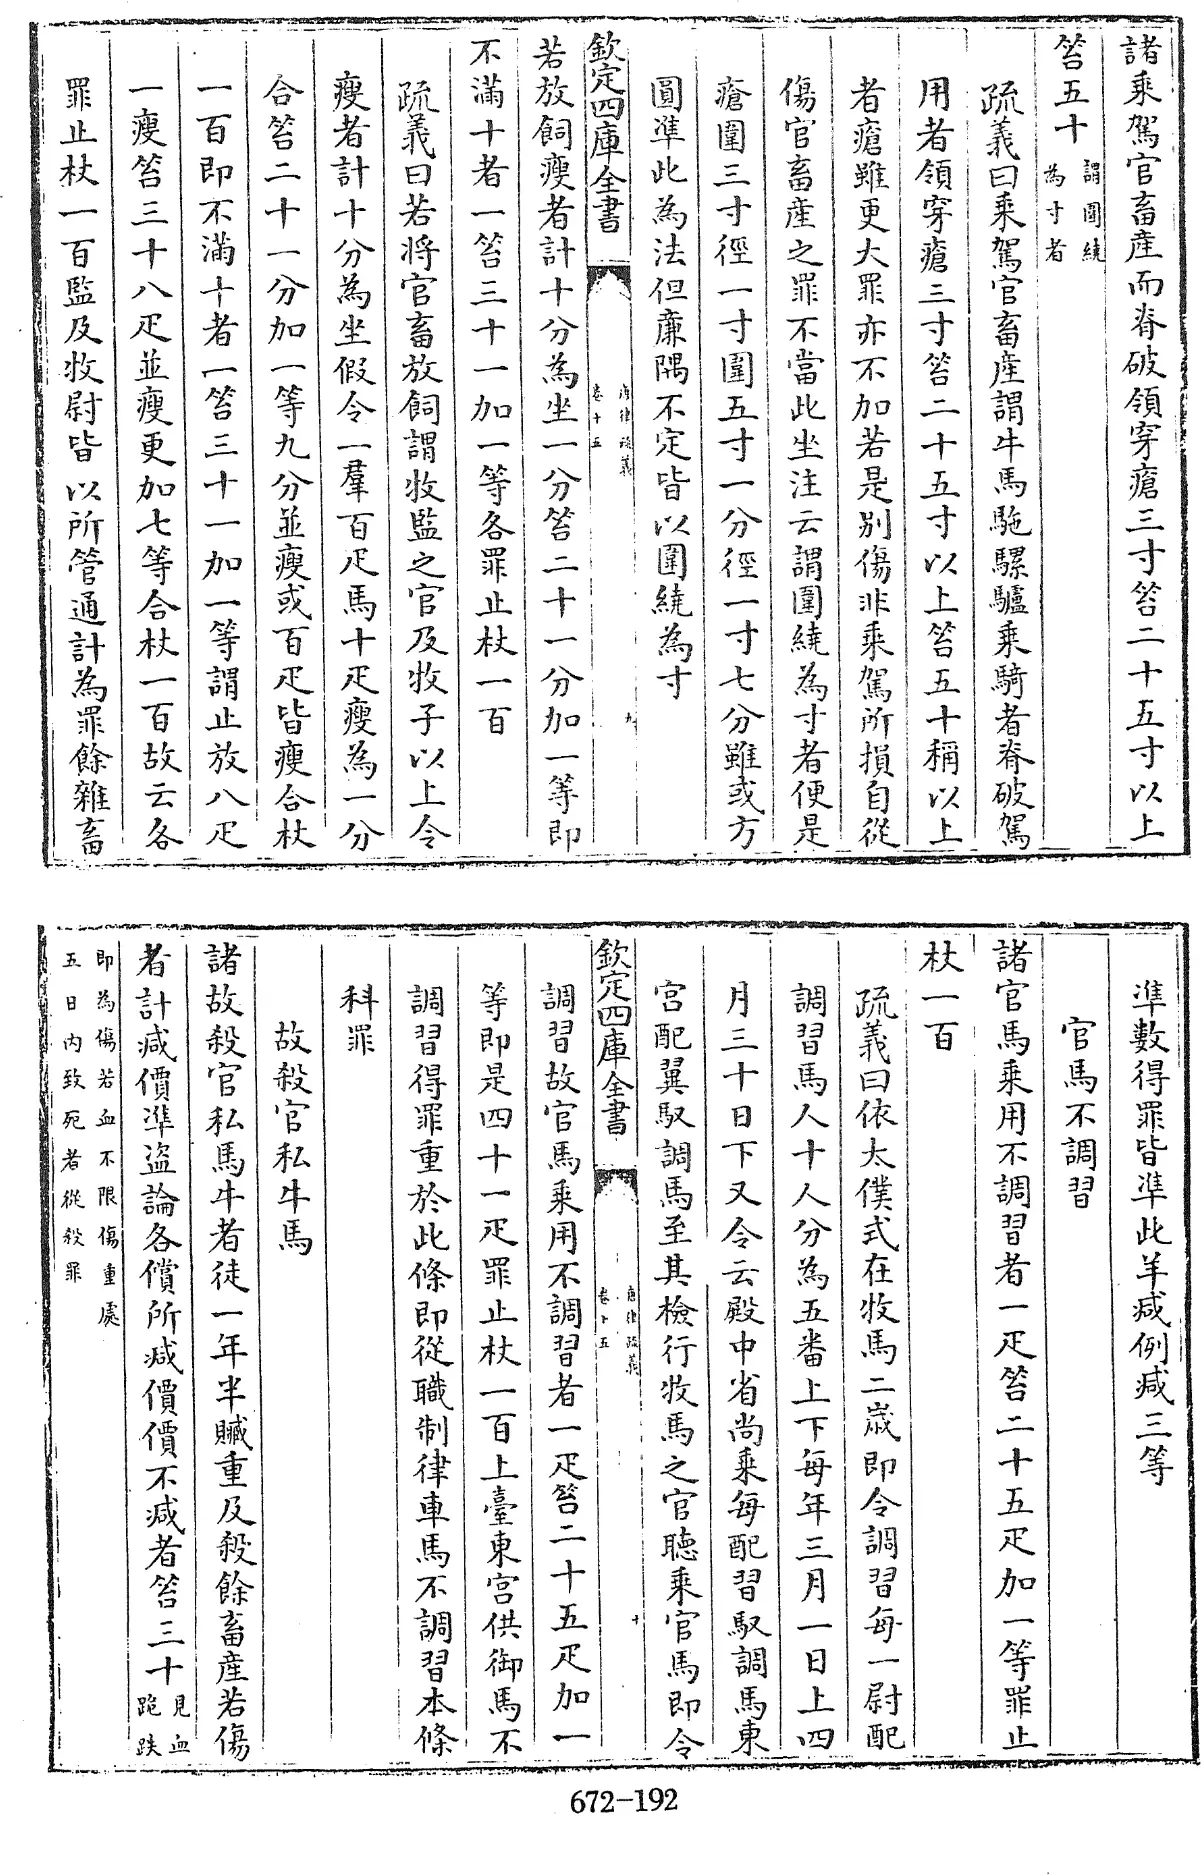 諸乘駕官畜産而脊破領穿瘡三寸笞二十五寸以上
笞五十謂圍繞為寸者
疏義曰乘駕官畜産謂牛馬駞騾驢乘騎者脊破駕
用者領穿瘡三寸笞二十五寸以上笞五十稱以上
者瘡雖更大罪亦不加若是别傷非乘駕所損自從
傷官畜産之罪不當此坐注云謂圍繞為寸者便是
瘡圍三寸徑一寸圍五寸一分徑一寸七分雖或方
圓準此為法但亷隅不定皆以圍繞為寸
欽定四庫全書 唐律疏義卷十五 九
若放飼瘦者計十分為坐一分笞二十一分加一等即
不滿十者一笞三十一加一等各罪止杖一百
疏義曰若將官畜放飼謂牧監之官及牧子以上令
瘦者計十分為坐假令一羣百疋馬十疋瘦為一分
合笞二十一分加一等九分並瘦或百疋皆瘦合杖
一百即不滿十者一笞三十一加一等謂止放八疋
一瘦笞三十八疋並瘦更加七等合杖一百故云各
罪止杖一百監及牧尉皆以所管通計為罪餘雜畜
準數得罪皆準此羊减例减三等
官馬不調習
諸官馬乘用不調習者一疋笞二十五疋加一等罪止
杖一百
疏義曰依太僕式在牧馬二歳即令調習每一尉配
調習馬人十人分為五番上下每年三月一日上四
月三十日下又令云殿中省尚乘每配習馭調馬東
宫配翼馭調馬至其檢行牧馬之官聽乘官馬即令
欽定四庫全書 唐律疏義卷十五 十
調習故官馬乘用不調習者一疋笞二十五疋加一
等即是四十一疋罪止杖一百上臺東宫供御馬不
調習得罪重於此條即從職制律車馬不調習本條
科罪
故殺官私牛馬
諸故殺官私馬牛者徒一年半贓重及殺餘畜産若傷
者計减價準盗論各償所减價價不减者笞三十見血跪跌
即為傷若血不限傷重處五日内致死者從殺罪
672-192